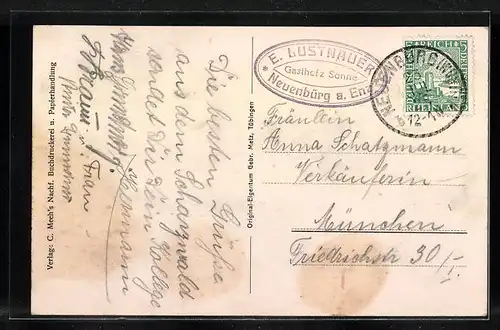 Die besten Grüße
aus dem Schwarzwald
sendet Dir Dein Kollege
Hermann
u. Frau
Verlag: C. Meeh's Nachf. Buchdruckerei u. Papierhandlung
Original-Eigentum Gebr. Metz, Tübingen
* E. LUSTNAUER *
Gasthof z. Sonne
Neuenbürg a. Enz
NEUENBÜRG (WÜRTT)
REICH
5
Fräulein
Anna Schatzmann
Verkäuferin
München
Friedrichstr 30/I.